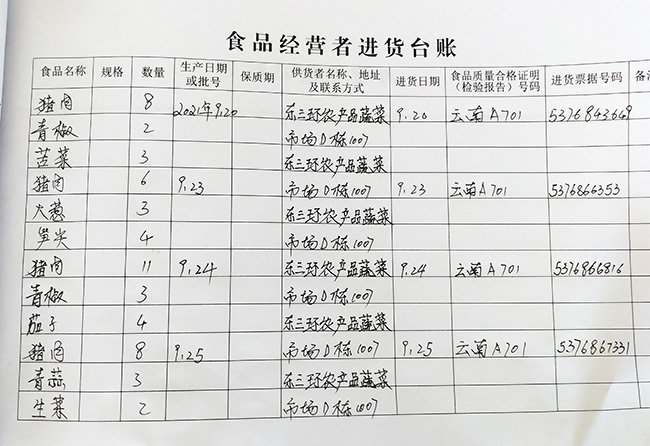 食品经营者进货台账
食品名称 规格 数量 生产日期或批号 保质期 供货者名称、地址及联系方式 进货日期 食品质量合格证明（检验报告）号码 进货票据号码 备
猪肉 8 2021年9.20 东三环农产品蔬菜 9.20 云南A701 5376843649
青椒 2 市场D栋1007
苦菜 3 东三环农产品蔬菜
猪肉 6 9.23 市场D栋1007 9.23 云南A701 5376866353
火葱 3 东三环农产品蔬菜
笋尖 4 市场D栋1007
猪肉 11 9.24 东三环农产品蔬菜 9.24 云南A701 5376866816
青椒 3 市场D栋1007
茄子 4 东三环农产品蔬菜
猪肉 8 9.25 市场D栋1007 9.25 云南A701 5376867331
青蒜 3 东三环农产品蔬菜
生菜 2 市场D栋1007